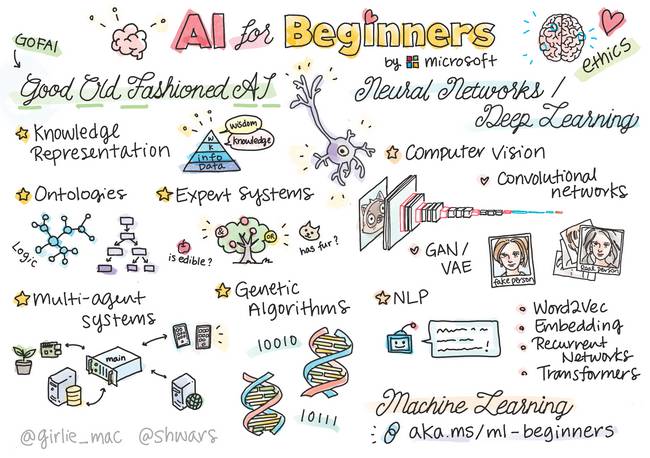 GOFAI
AI for Beginners
by Microsoft
ethics
Good Old Fashioned AI
Knowledge
Representation
wisdom
Knowledge
W
K
info
Data
Ontologies
Logic
Expert Systems
&
OR
is edible?
has fur?
Multi-agent
systems
main
Genetic
Algorithms
10010
10111
@girlie_mac @shwars
Neural Networks /
Deep Learning
Computer Vision
Convolutional
networks
GAN /
VAE
fake person
Real person
NLP
Word2Vec
Embedding
Recurrent
Networks
Transformers
Machine Learning
aka.ms/ml-beginners